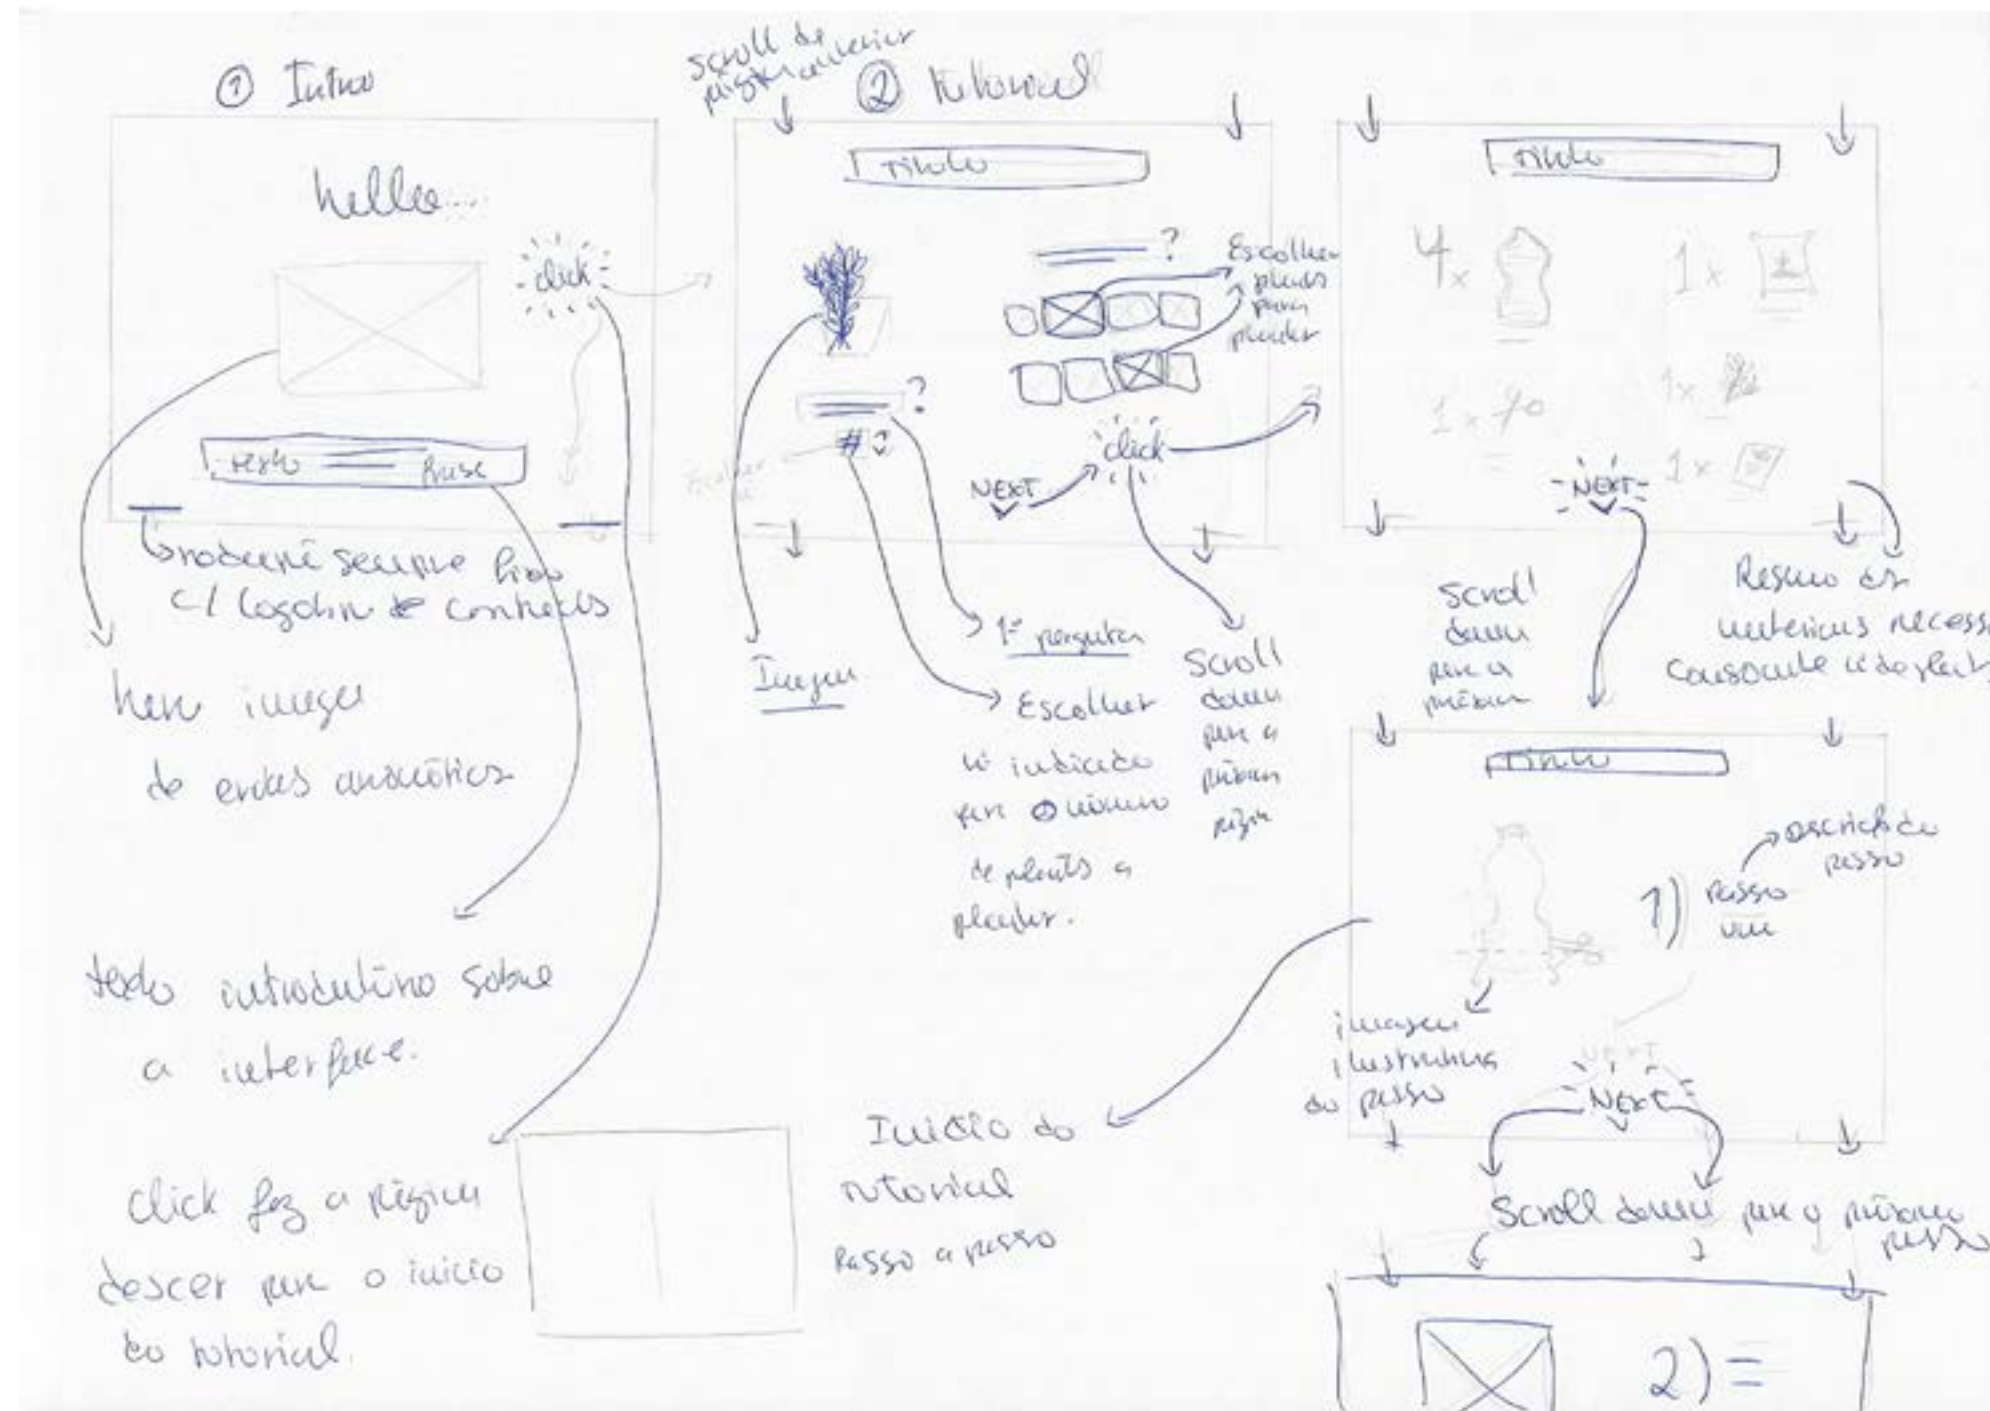 ① Intro
hello...
click
texto frase
rodapé sempre fixo
c/ logotipo e contactos
hero image
de ervas aromáticas
texto introdutório sobre
a interface.
Click faz a página
descer para o início
do tutorial.
Scroll da
página anterior
② tutorial
Título
?
Escolher
plantas
para
plantar
?
#
Escolher
click
NEXT
Imagem
1ª pergunta
Escolher
nº indicado
para o número
de plantas a
plantar.
Scroll
down
para a
próxima
página
Título
4x
1x
1x
1x
1x
NEXT
Scroll
down
para a
próxima
Resumo dos
materiais necess
consoante nº de plants
Título
1) Passo
um
descrição do
passo
imagem
ilustrativa
do passo
NEXT
NEXT
Início do
tutorial
Passo a passo
Scroll down para o próximo
passo
2)